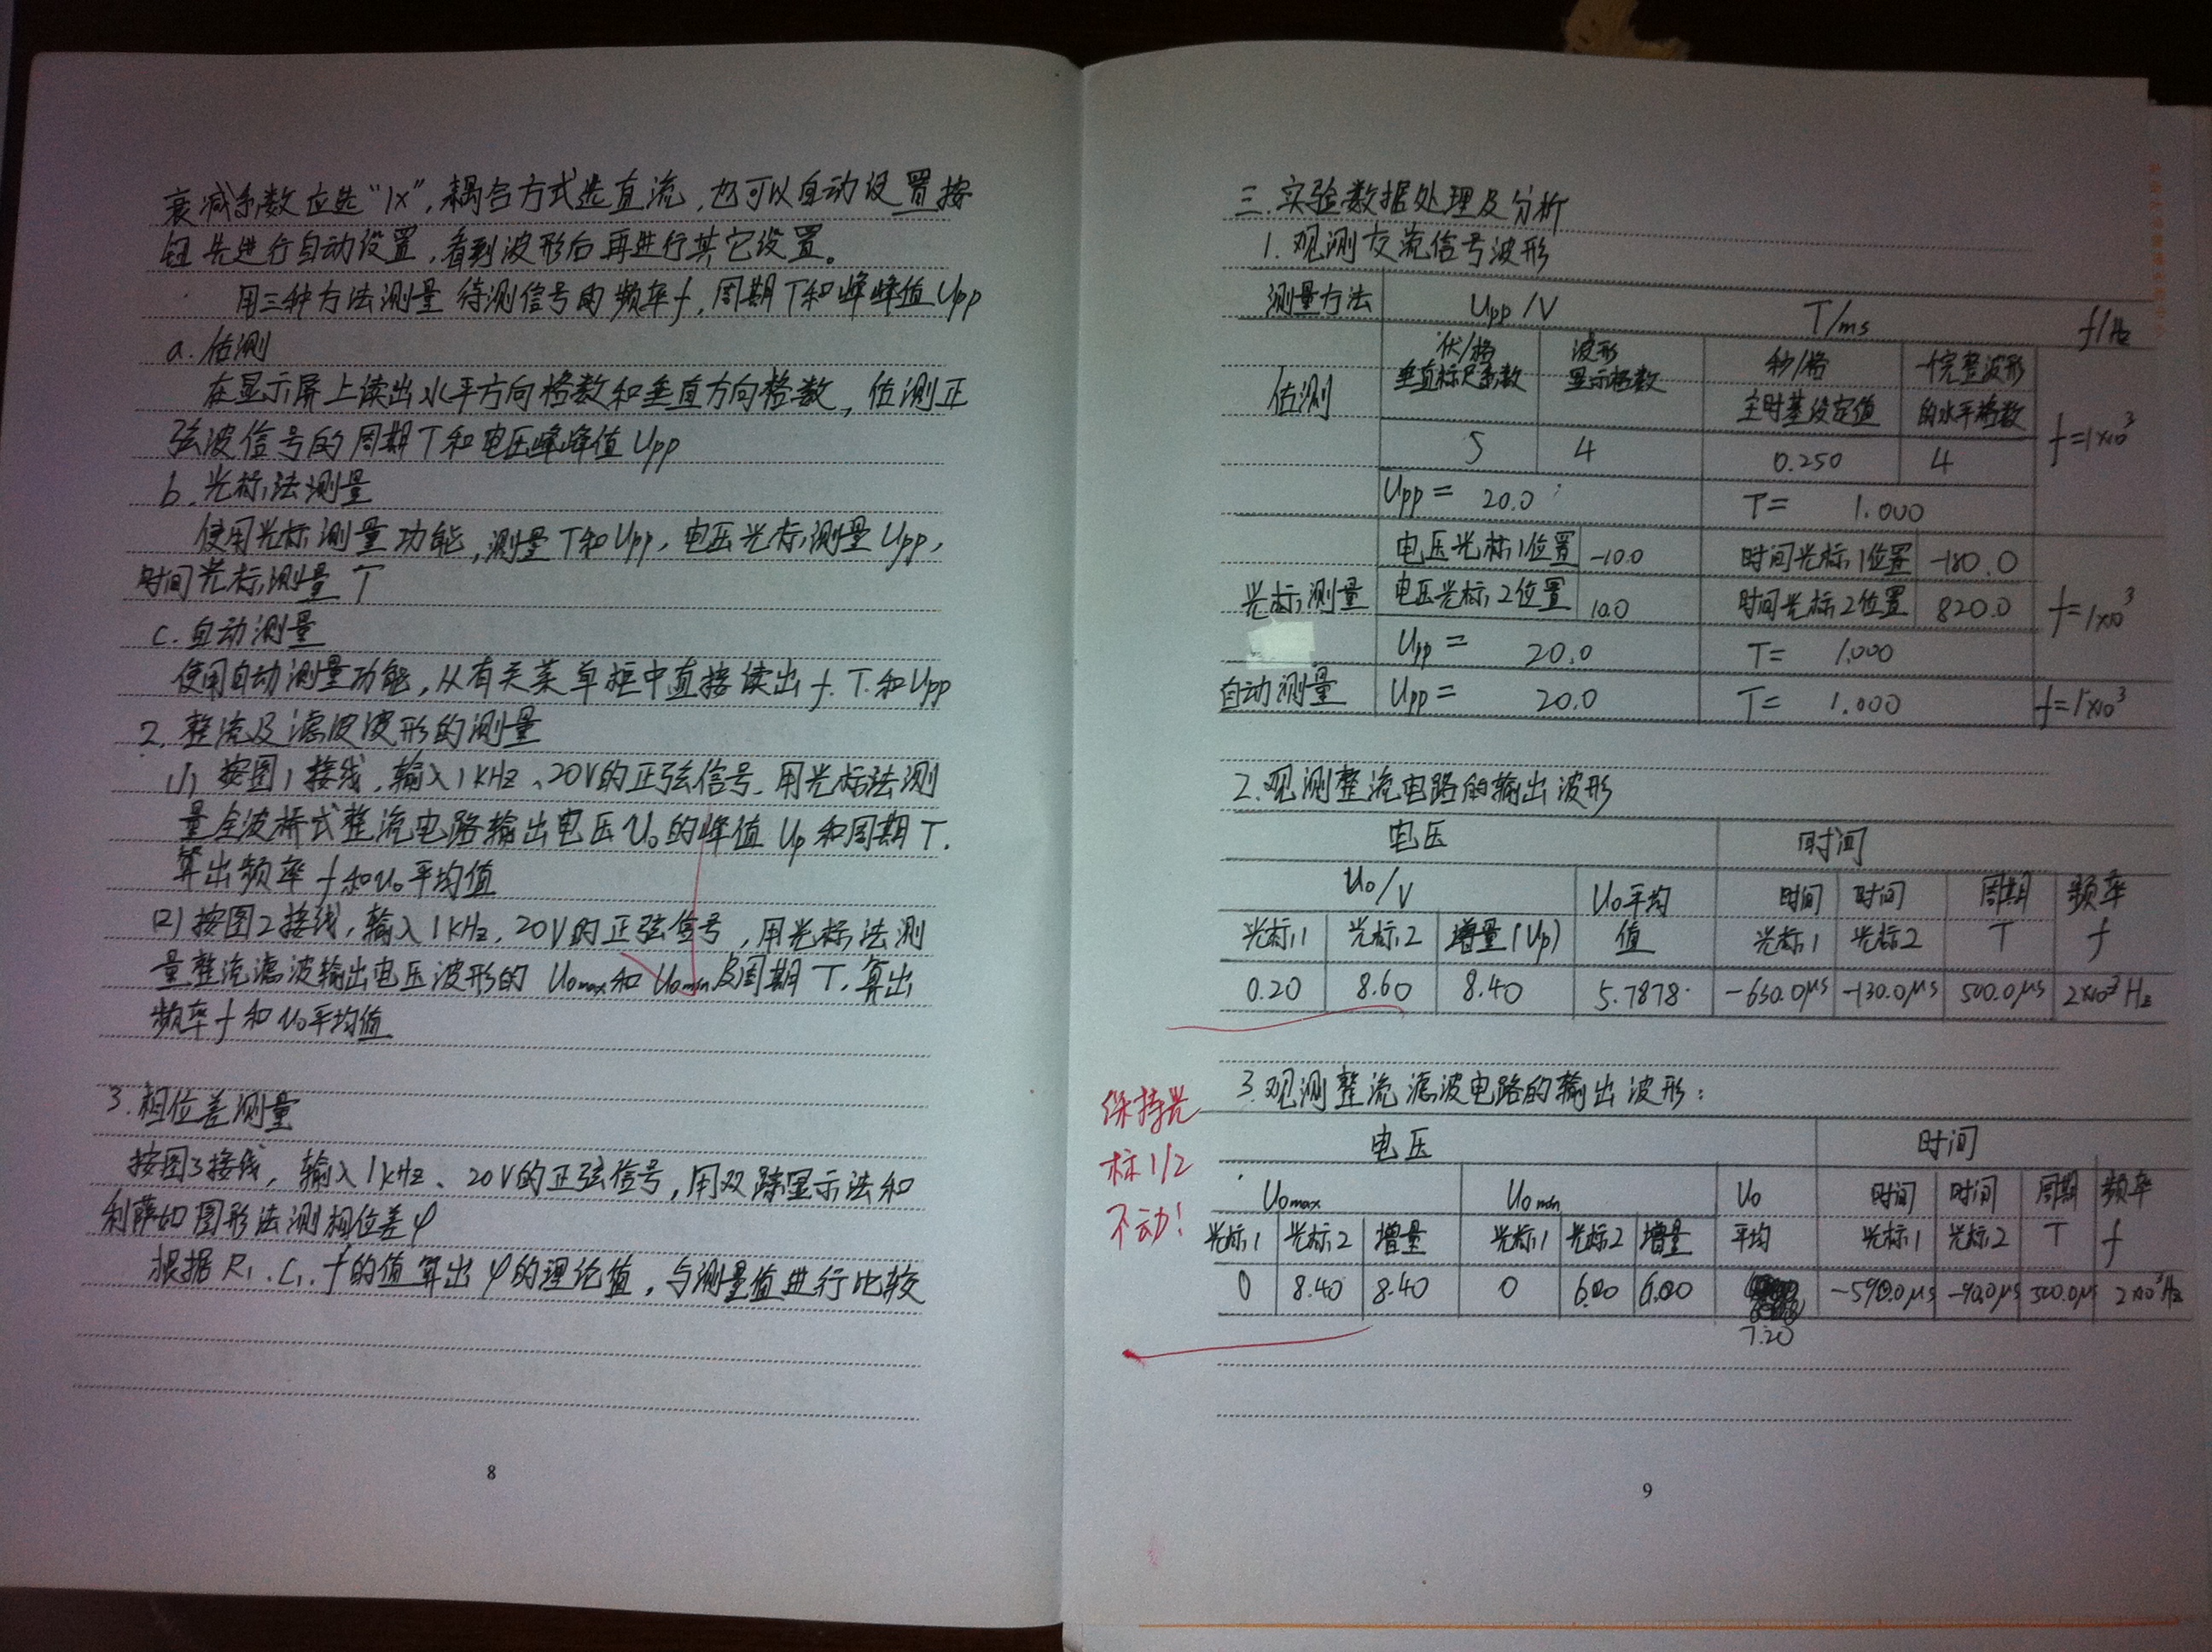 衰减系数应选“1X”，耦合方式选直流，也可以自动设置按
钮先进行自动设置，看到波形后再进行其它设置。
用三种方法测量待测信号的频率f，周期T和峰峰值Upp
a.估测
在显示屏上读出水平方向格数和垂直方向格数，估测正
弦波信号的周期T和电压峰峰值Upp
b.光标法测量
使用光标测量功能，测量T和Upp，电压光标测量Upp，
时间光标测量T
c.自动测量
使用自动测量功能，从有关菜单框中直接读出f.T.和Upp
2.整流及滤波波形的测量
(1)按图1接线，输入1kHz、20V的正弦信号.用光标法测
量全波桥式整流电路输出电压U₀的峰值Up和周期T.
算出频率f和U₀平均值
(2)按图2接线，输入1kHz、20V的正弦信号，用光标法测
量整流滤波输出电压波形的U₀max和U₀min及周期T.算出
频率f和U₀平均值
3.相位差测量
按图3接线，输入1kHz、20V的正弦信号，用双踪显示法和
利萨如图形法测相位差φ
根据R.C.f的值算出φ的理论值，与测量值进行比较
8
三.实验数据处理及分析
1.观测交流信号波形
测量方法 Upp/V T/ms f/Hz
估测 伏/格 垂直标定系数 波形 显示格数 秒/格 主时基设定值 一个完整波形 的水平格数 f=1×10³
5 4 0.250 4
Upp= 20.0 T= 1.000
光标测量 电压光标1位置 -10.0 时间光标1位置 -180.0 f=1×10³
电压光标2位置 10.0 时间光标2位置 820.0
Upp= 20.0 T= 1.000
自动测量 Upp= 20.0 T= 1.000 f=1×10³
2.观测整流电路的输出波形
电压 时间
U₀/V U₀平均 时间 时间 周期 频率
光标1 光标2 增量(Up) 值 光标1 光标2 T f
0.20 8.60 8.40 5.7878 -630.0μs -130.0μs 500.0μs 2×10³Hz
3.观测整流滤波电路的输出波形：
保持光
标1/2
不动！
电压 时间
U₀max U₀min U₀ 时间 时间 周期 频率
光标1 光标2 增量 光标1 光标2 增量 平均 光标1 光标2 T f
0 8.40 8.40 0 6.00 6.00 7.20 -590.0μs -90.0μs 500.0μs 2×10³Hz
9